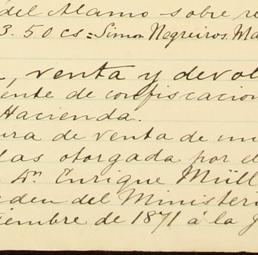 del Alamo sobre re
3.50 cs = Simon Negreiros. Ma
, venta y devol
ente de confiscacion
Hacienda.
ura de venta de un
das otorgada por d
Dn Enrique Müll
eden del Ministeri
tiembre de 1871 á la J